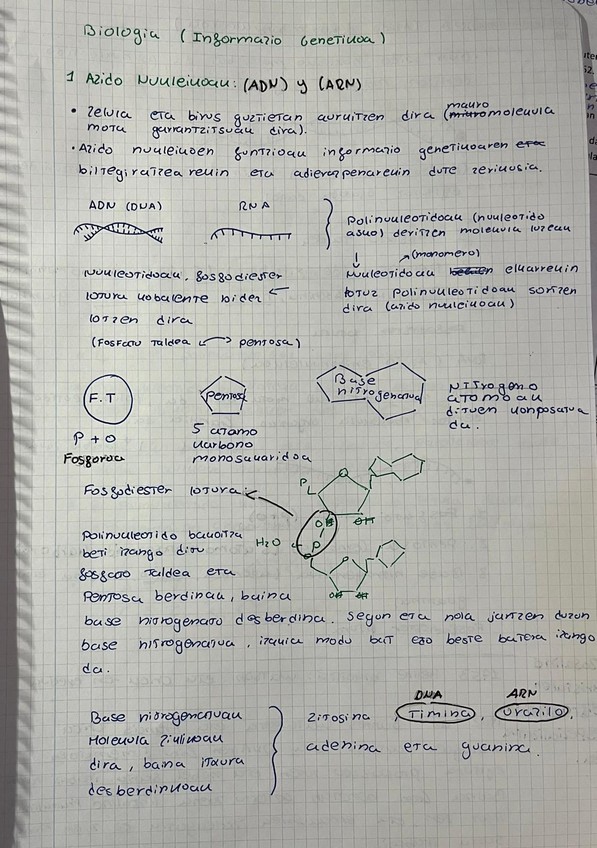 Biologia ( Informazio Genetikoa )
1 Azido Nukleikoak: (ADN) y (ARN)
• Zelula eta birus guztietan aurkitzen dira (makromolekula
mota garrantzitsuak dira).
• Azido nukleikoen funtzioak informazio genetikoaren
biltegiratzearekin eta adierazpenarekin dute zerikusia.
ADN (DNA)
RNA
Polinukleotidoak (nukleotido
asko) deritzen molekula luzeak
(monomero)
Nukleotidoak elkarrekin
lotuz polinukleotidoak sortzen
dira (azido nukleikoak)
Nukleotidoak, fosfodiester
lotura kobalente bidez
lotzen dira
(Fosfato Taldea ↔ pentosa)
F.T
Pentosa
Base
nitrogenatua
Nitrogeno
atomoak
dituen konposatua
da.
P + O
Fosforoa
5 atomo
karbono
monosakaridoa
Fosfodiester lotura:
P
O
OH
OH
H2O
P
O
OH
OH
Polinukleotido bakoitza
beti izango ditu
fosfato taldea eta
Pentosa berdinak, baina
base nitrogenato desberdina. Segun eta nola jartzen duzun
base nitrogenatua, izakia modu bat edo beste batera izango
da.
Base nitrogenatuak
Molekula ziklikoak
dira, baina itxura
desberdinekoak
DNA
ARN
zitosina, timina, urazilo,
adenina eta guanina.